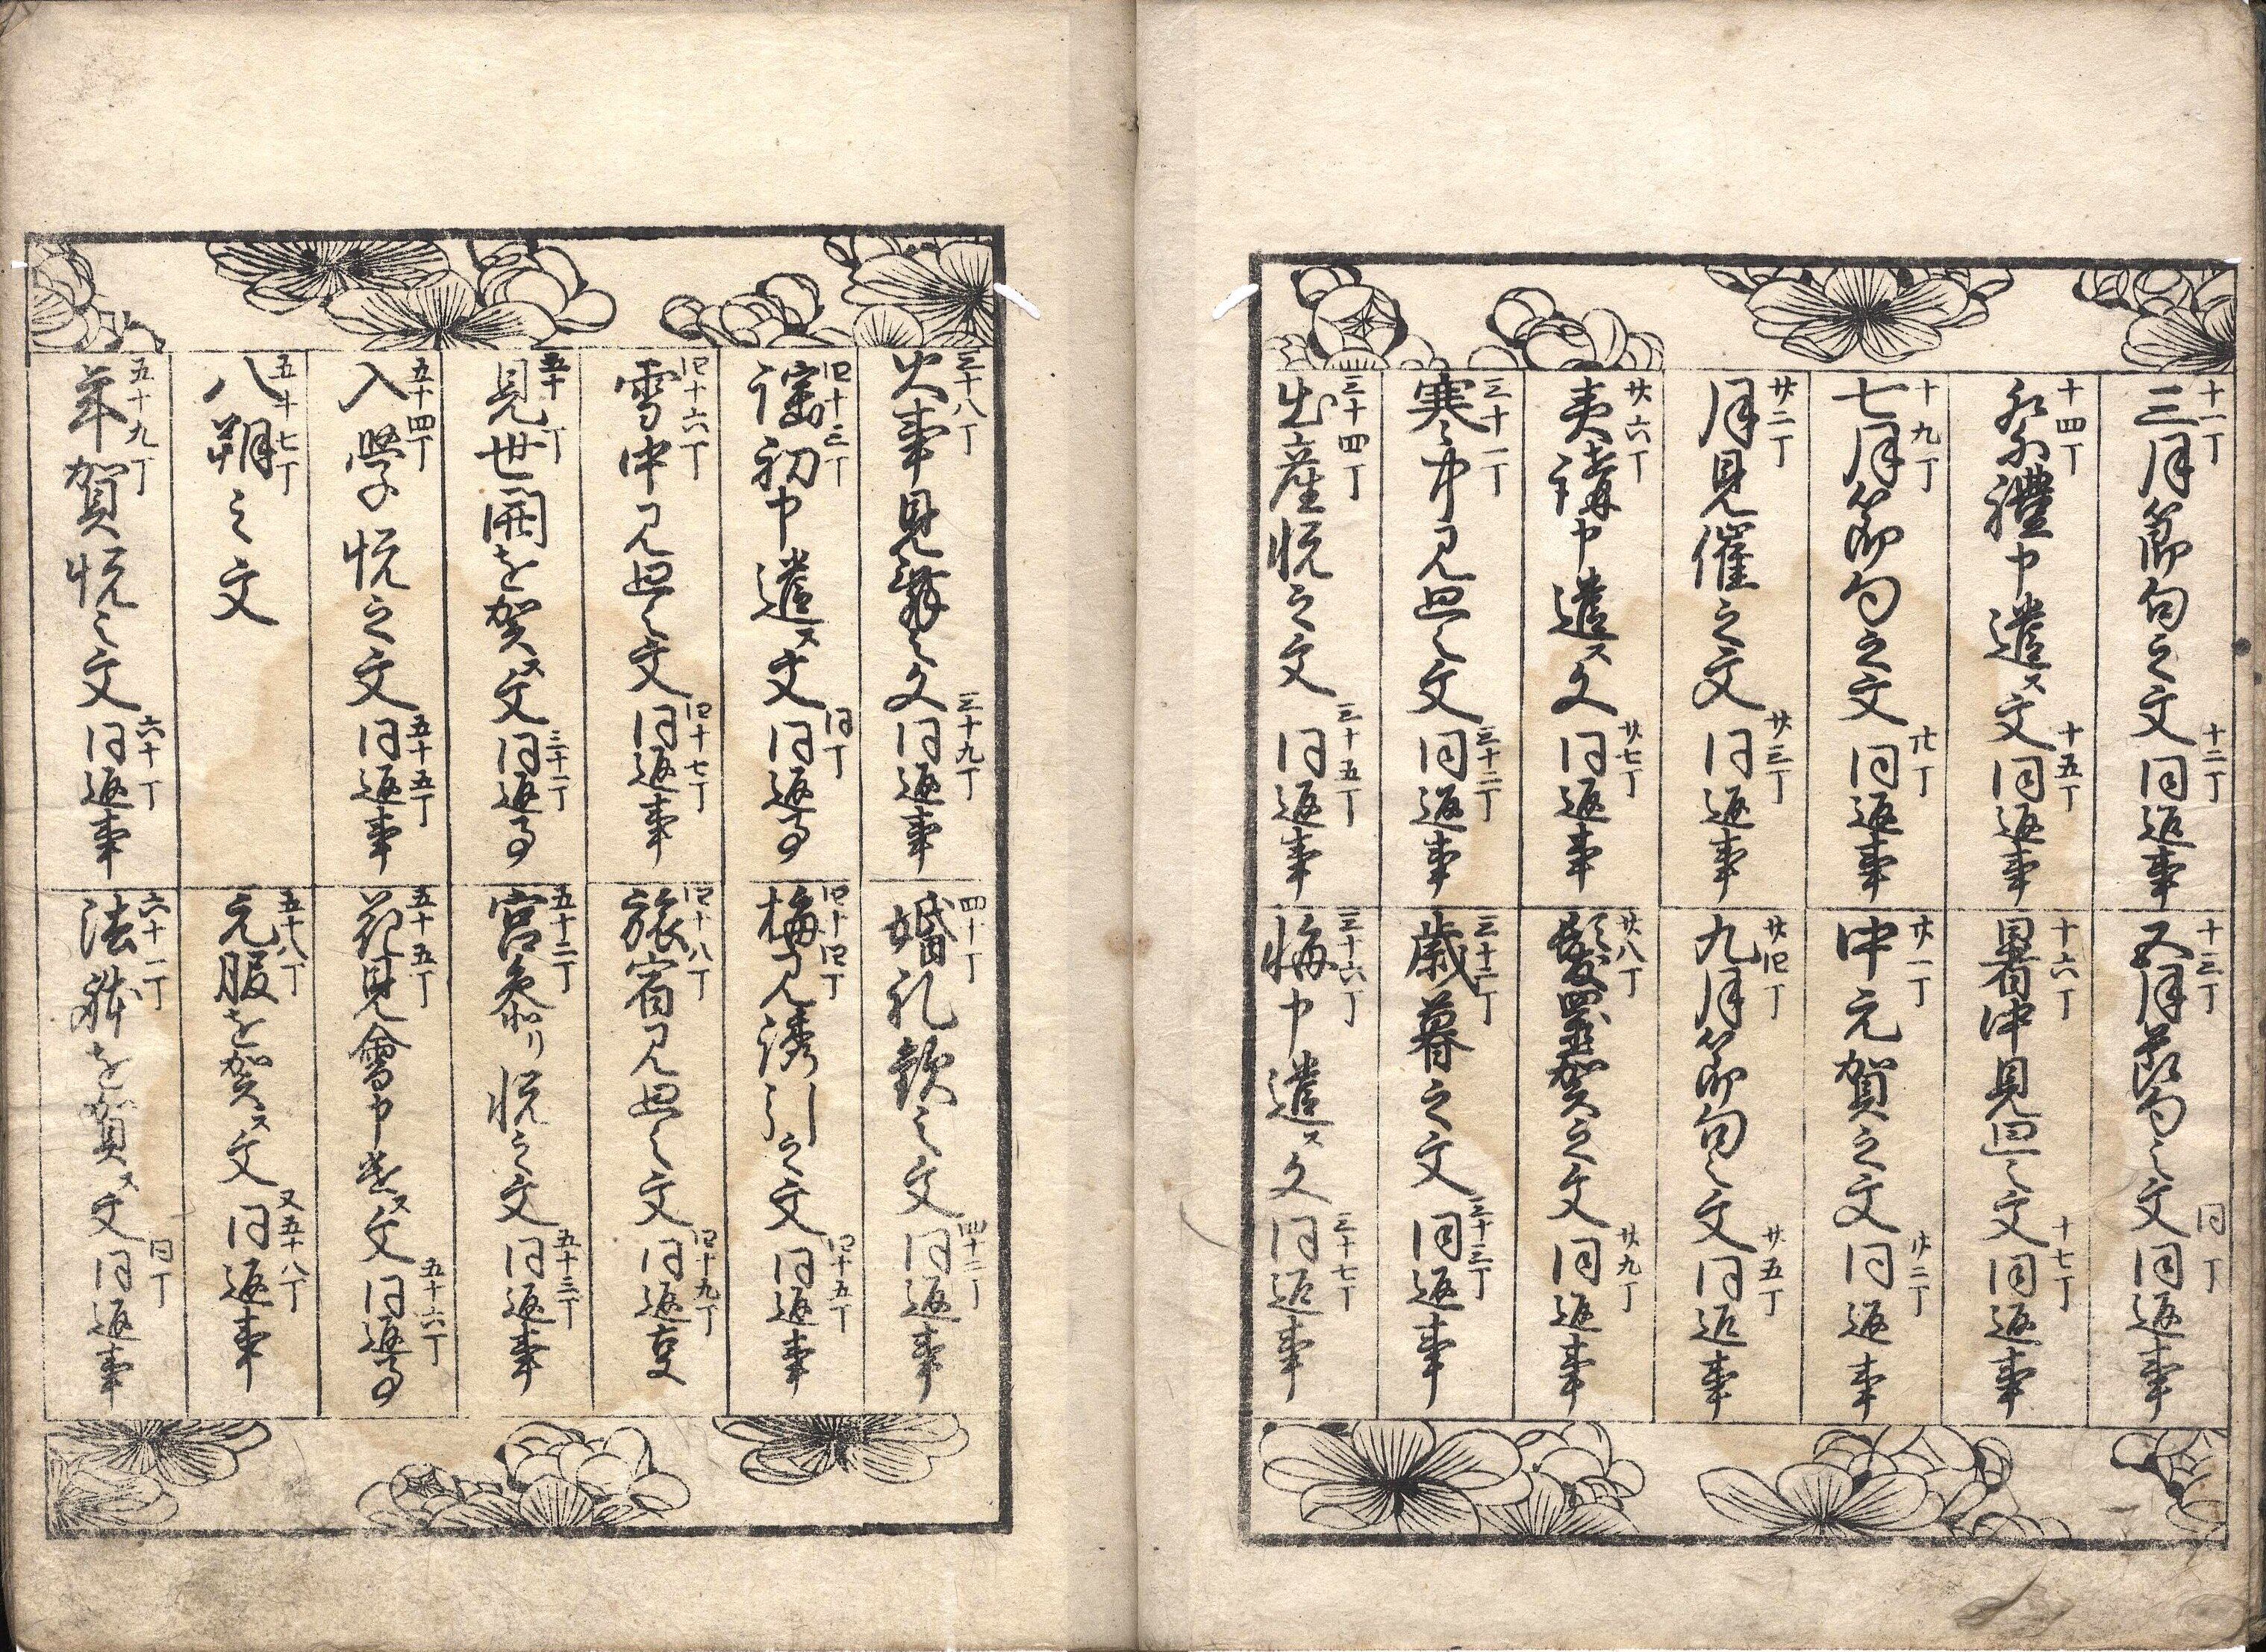 十一丁 三月節句之文 十二丁 同返事
十三丁 五月節句之文 同丁 同返事
十四丁 祭禮ニ申遣ス文 十五丁 同返事
十六丁 暑中見回之文 十七丁 同返事
十九丁 七月節句之文 廿丁 同返事
廿一丁 中元賀之文 廿二丁 同返事
廿二丁 月見催之文 廿三丁 同返事
廿四丁 九月節句之文 廿五丁 同返事
廿六丁 夷講申遣ス文 廿七丁 同返事
廿八丁 髪置賀之文 廿九丁 同返事
三十一丁 寒中見回之文 三十二丁 同返事
三十二丁 歳暮之文 三十三丁 同返事
三十四丁 出産悦之文 三十五丁 同返事
三十六丁 悔申遣ス文 三十七丁 同返事
三十八丁 火事見舞之文 三十九丁 同返事
四十丁 婚礼歓之文 四十二丁 同返事
四十三丁 初申遣ス文 同丁 同返事
四十四丁 梅見誘引之文 四十五丁 同返事
四十六丁 雪中見回之文 四十七丁 同返事
四十八丁 旅宿見回之文 四十九丁 同返事
五十丁 見世開を賀ス文 同返事
五十二丁 宮参り悦之文 五十三丁 同返事
五十四丁 入學悦之文 五十五丁 同返事
五十五丁 花見會申遣ス文 五十六丁 同返事
五十七丁 八朔之文
五十八丁 元服を賀ス文 又五十八丁 同返事
五十九丁 年賀悦之文 六十丁 同返事
六十一丁 法躰を賀ス文 同丁 同返事